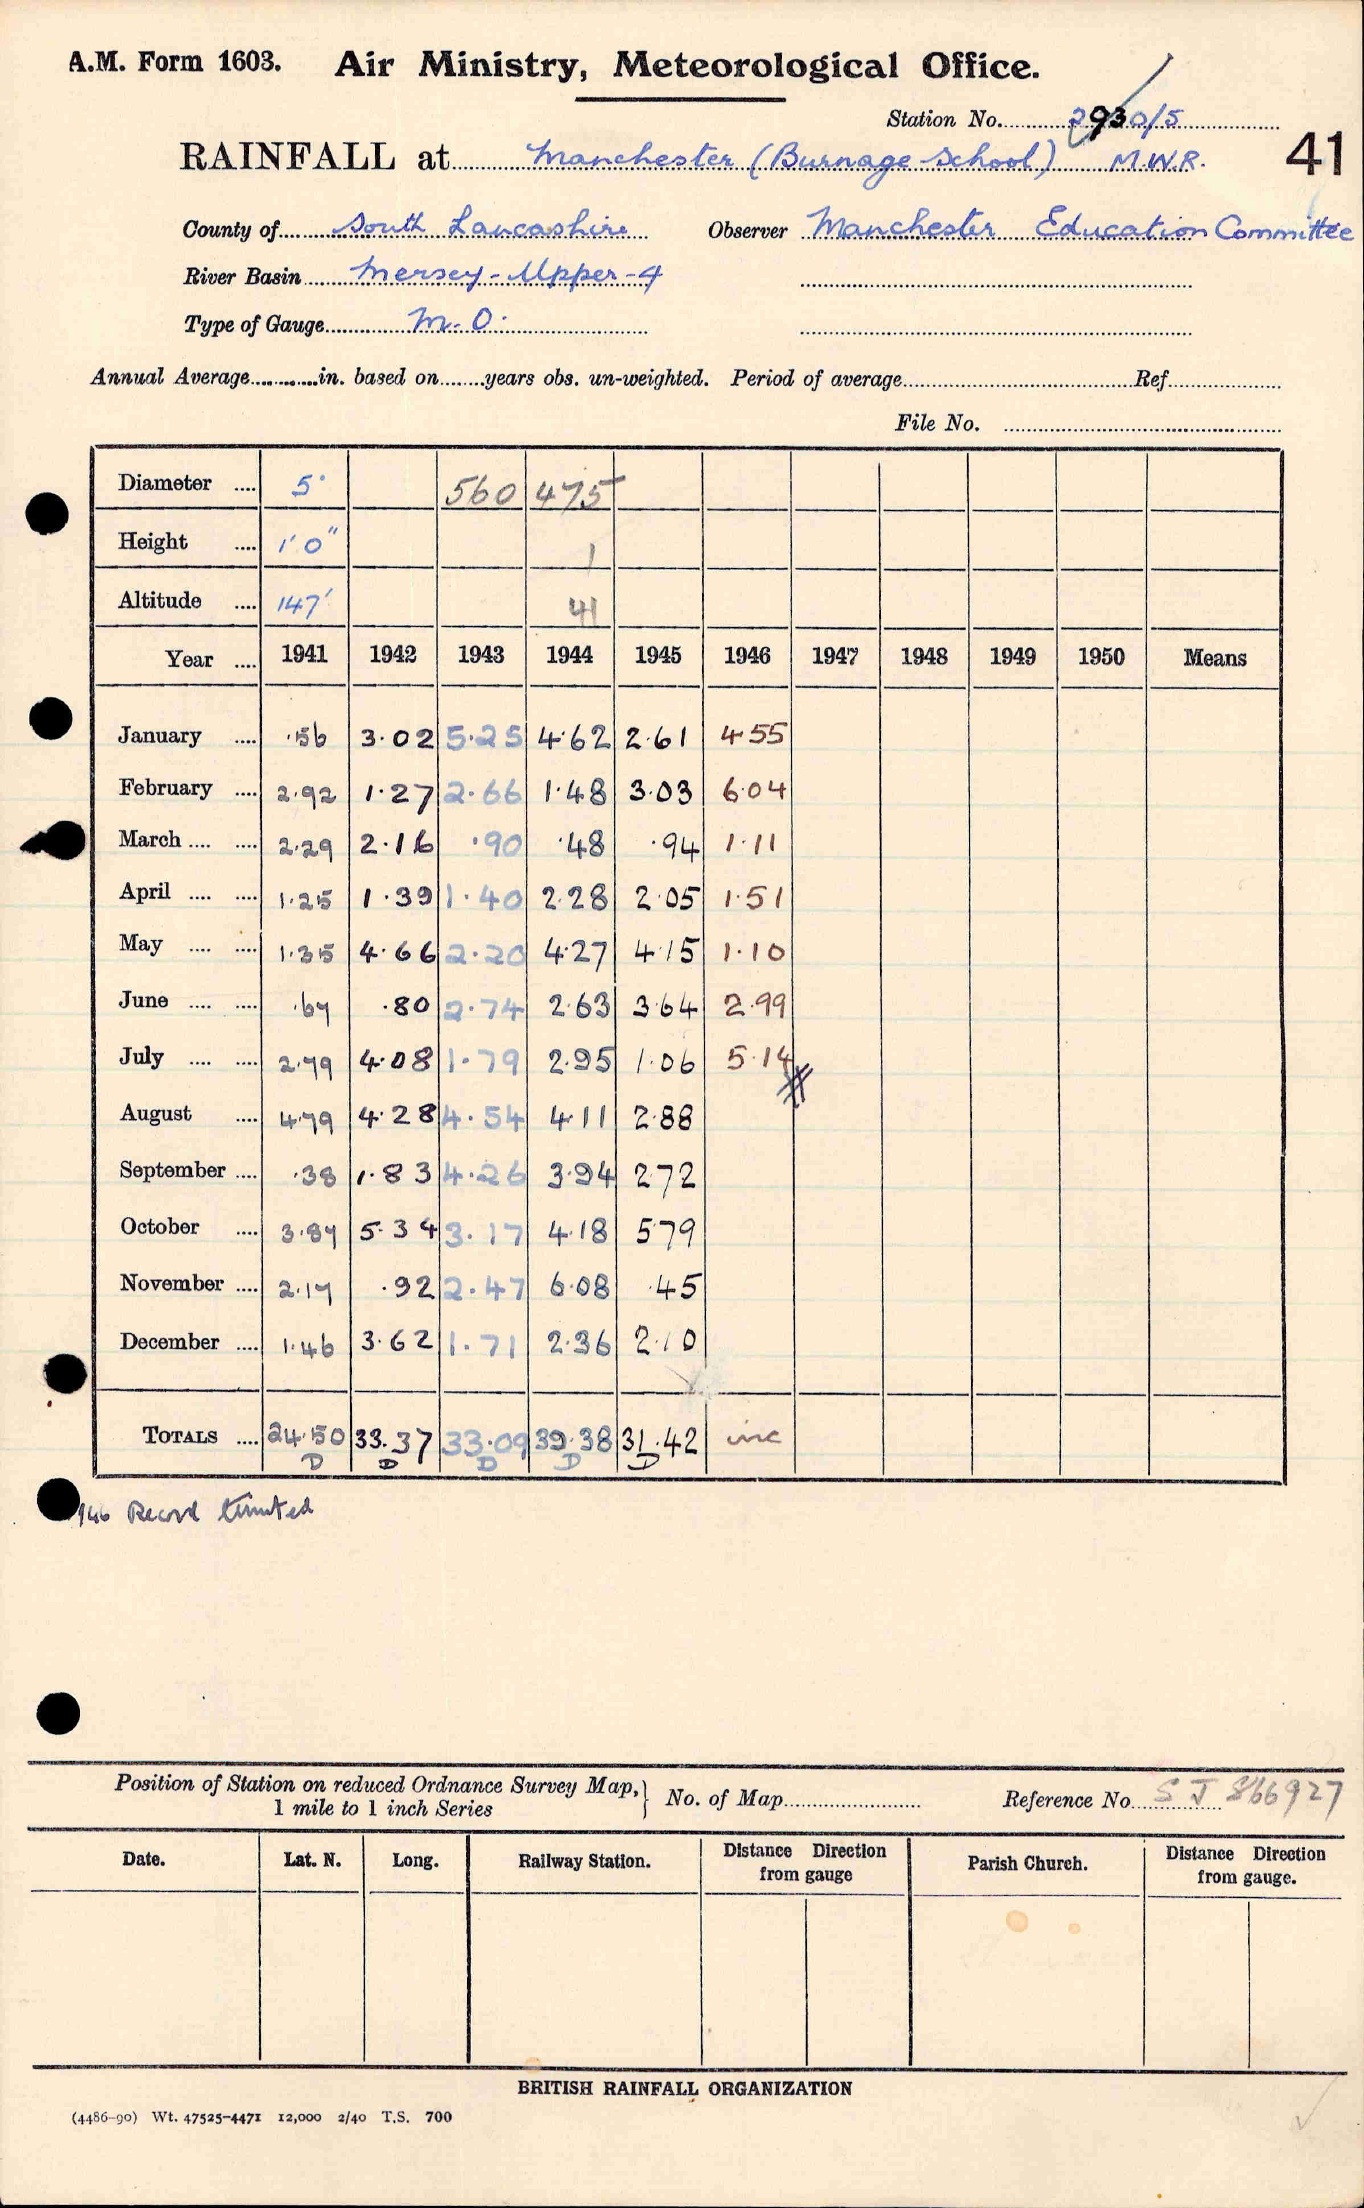 A.M. Form 1603. Air Ministry, Meteorological Office.
Station No. 2930/5
RAINFALL at Manchester (Burnage School) M.W.R. 41
County of South Lancashire Observer Manchester Education Committee
River Basin Mersey-Upper-4
Type of Gauge M.O.
Annual Average in. based on years obs. un-weighted. Period of average Ref
File No.
Diameter 5" 560 475
Height 1'0" 1
Altitude 147' 41
Year 1941 1942 1943 1944 1945 1946 1947 1948 1949 1950 Means
January .56 3.02 5.25 4.62 2.61 4.55
February 2.92 1.27 2.66 1.48 3.03 6.04
March 2.29 2.16 .90 .48 .94 1.11
April 1.25 1.39 1.40 2.28 2.05 1.51
May 1.35 4.66 2.20 4.27 4.15 1.10
June .67 .80 2.74 2.63 3.64 2.99
July 2.79 4.08 1.79 2.95 1.06 5.14
August 4.79 4.28 4.54 4.11 2.88
September .38 1.83 4.26 3.94 2.72
October 3.87 5.34 3.17 4.18 5.79
November 2.17 .92 2.47 6.08 .45
December 1.46 3.62 1.71 2.36 2.10
TOTALS 24.50 33.37 33.09 39.38 31.42 inc
D D D D D
Record
Position of Station on reduced Ordnance Survey Map, No. of Map Reference No. SJ 866927
1 mile to 1 inch Series
Date. Lat. N. Long. Railway Station. Distance Direction from gauge Parish Church. Distance Direction from gauge.
BRITISH RAINFALL ORGANIZATION
(4486-90) Wt. 47525-4471 12,000 2/40 T.S. 700